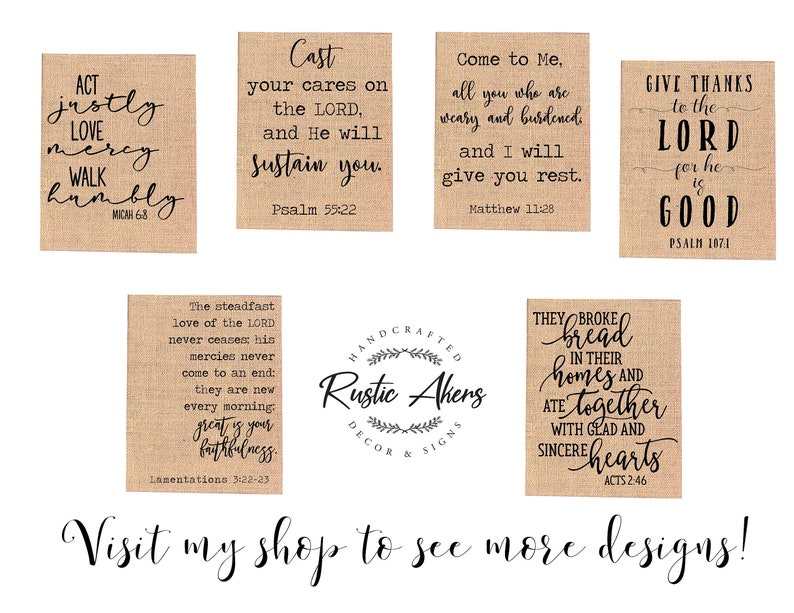 ACT
justly
LOVE
mercy
WALK
humbly
MICAH 6:8
Cast
your cares on
the LORD,
and He will
sustain you.
Psalm 55:22
Come to Me,
all you who are
weary and burdened,
and I will
give you rest.
Matthew 11:28
GIVE THANKS
to the
LORD
for he
is
GOOD
PSALM 107:1
The steadfast
love of the LORD
never ceases; his
mercies never
come to an end;
they are new
every morning;
great is your
faithfulness.
Lamentations 3:22-23
HANDCRAFTED
Rustic Akers
DECOR & SIGNS
THEY BROKE
bread
IN THEIR
homes AND
ATE together
WITH GLAD AND
SINCERE hearts
ACTS 2:46
Visit my shop to see more designs!